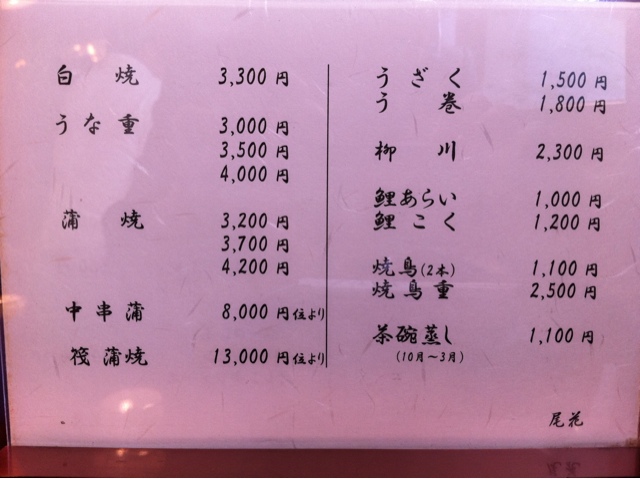 白焼 3,300円
うな重 3,000円
3,500円
4,000円
蒲焼 3,200円
3,700円
4,200円
中串蒲 8,000円位より
筏蒲焼 13,000円位より
うざく 1,500円
う巻 1,800円
柳川 2,300円
鯉あらい 1,000円
鯉こく 1,200円
焼鳥(2本) 1,100円
焼鳥重 2,500円
茶碗蒸し 1,100円
(10月~3月)
尾花